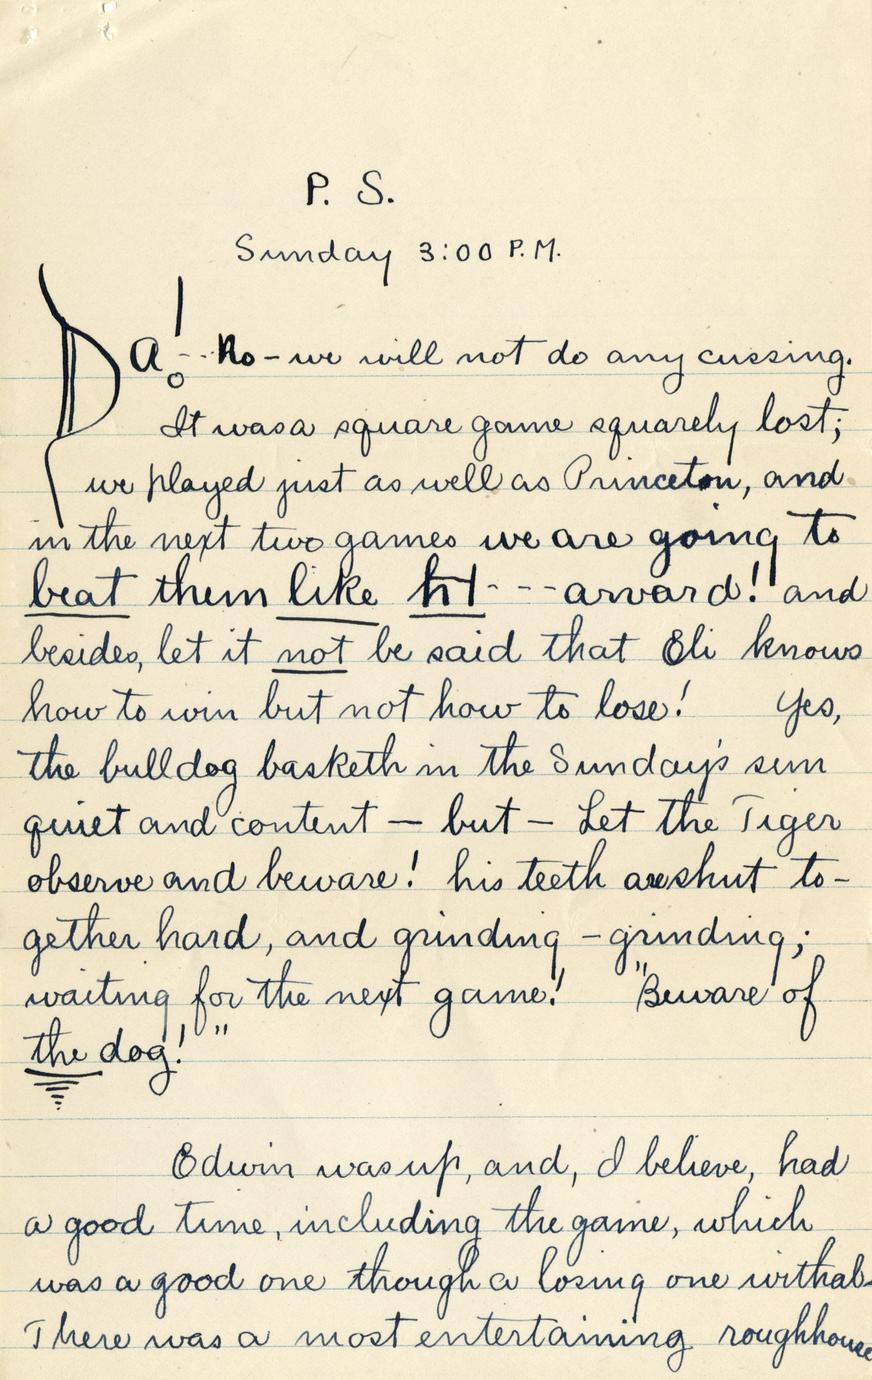 P. S.
Sunday 3:00 P.M.
Da! - - No - we will not do any cussing.
It was a square game squarely lost;
we played just as well as Princeton, and
in the next two games we are going to
beat them like h - - - arvard! and
besides, let it not be said that Eli knows
how to win but not how to lose! Yes,
the bulldog basketh in the Sunday's sun
quiet and content — but — Let the Tiger
observe and beware! his teeth are shut to-
gether hard, and grinding - grinding;
waiting for the next game! "Beware of
the dog!"
Edwin was up, and, I believe, had
a good time, including the game, which
was a good one though a losing one withal.
There was a most entertaining roughhouse